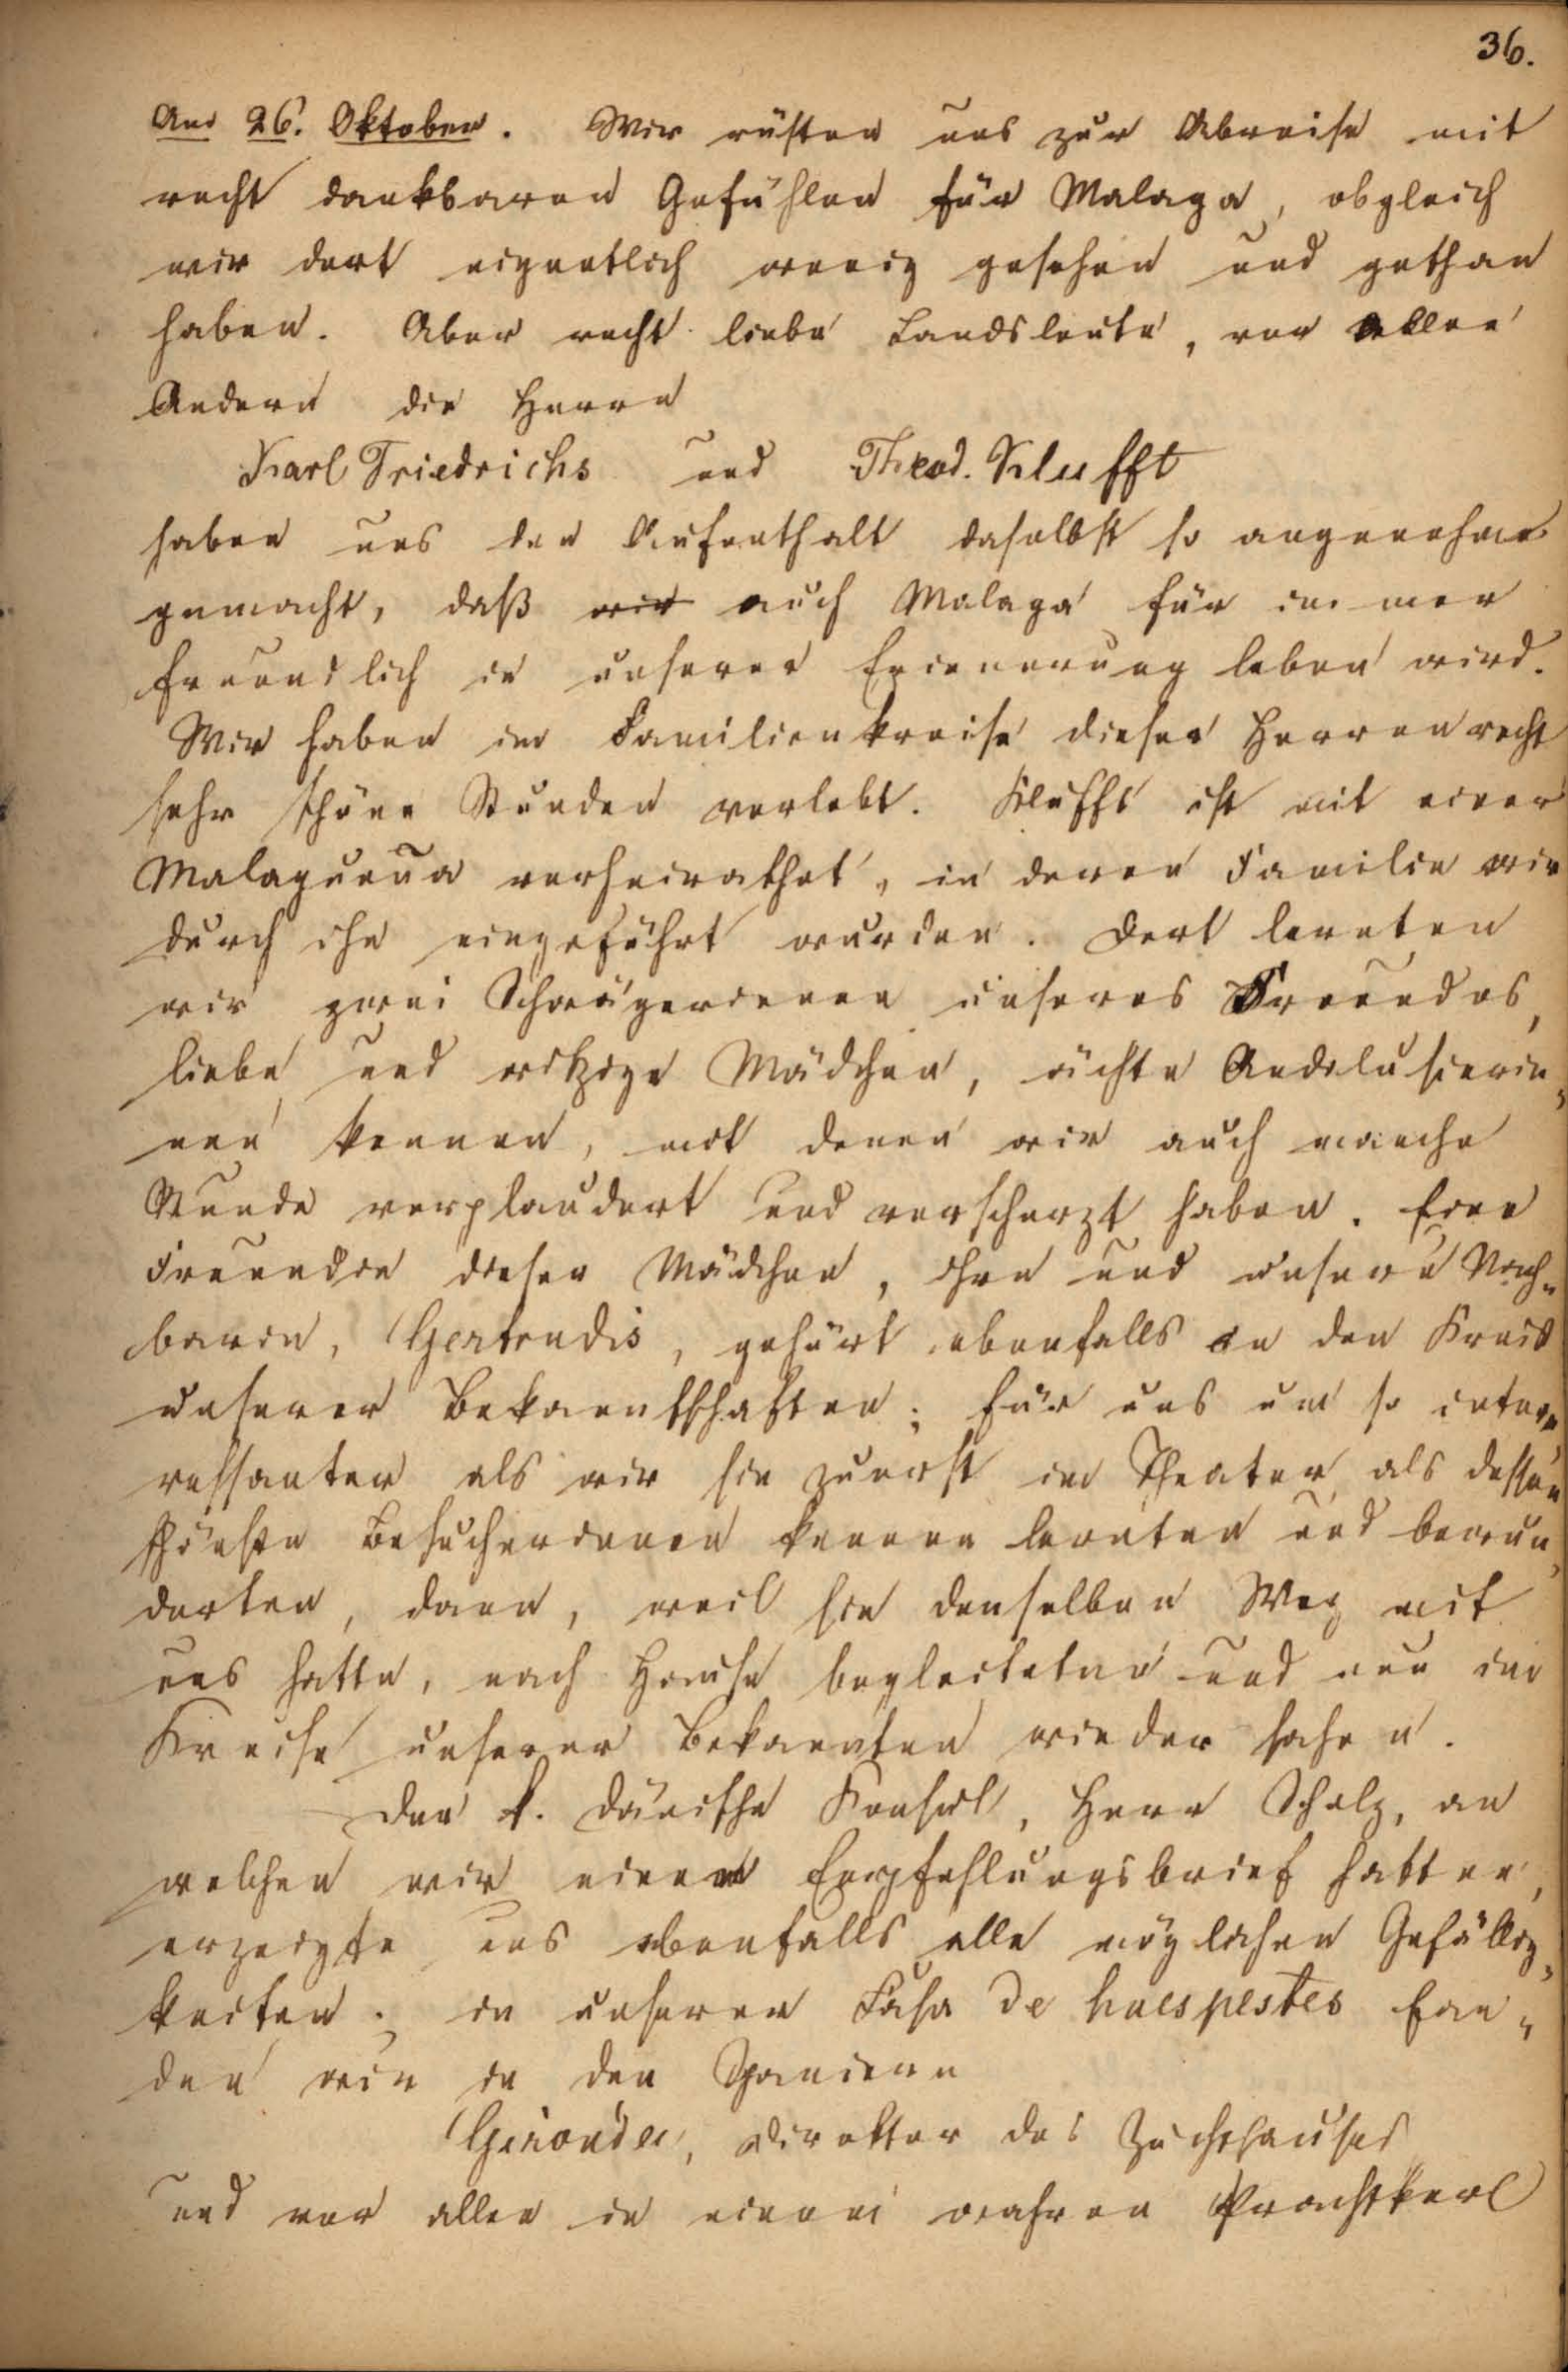 36.
Am 26. Oktober. Wir rüsten uns zur Abreise mit
recht dankbaren Gefühlen für Malaga, obgleich
wir dort eigentlich wenig gesehen und gethan
haben. Aber recht liebe Landsleute, vor allen
Andern die Herrn
Karl Friedrichs und Theod. Klufft
haben uns den Aufenthalt daselbst so angenehm
gemacht, daß wir auch Malaga für immer
freundlich in unserer Erinnerung leben wird.
Wir haben im Familienkreise dieser Herren recht
sehr schöne Stunden verlebt. Klufft ist mit einer
Malaguena verheirathet, in deren Familie wir
durch ihn eingeführt wurden. Dort lernten
wir zwei Schwägerinnen unseres Freundes,
liebe und witzige Mädchen, ächte Andalusierin„
nen kennen, mit denen wir auch manche
Stunde verplaudert und verscherzt haben. Eine
Freundin dieser Mädchen, ihre und unsere Nach„
barin, Gertrudis, gehört ebenfalls in den Kreis
unserer Bekanntschaften; für uns um so inte„
ressanter als wir sie zuerst im Theater als dessen
schönste Besucherinnen kennen lernten und bewun„
derten, dann, weil sie denselben Weg mit
uns hatte, nach Hause begleiteten und nun im
Kreise unserer Bekannten wieder sahen.
Der k. dänische Konsul, Herr Scholz, an
welchen wir einen Empfehlungsbrief hatten,
erzeigte uns ebenfalls alle möglichen Gefällig„
keiten. in unserer Casa de huespestes fan„
den wir in den Spaniern
Direktor des Zuchthauses
und vor allen in einem wahren Prachtkerl